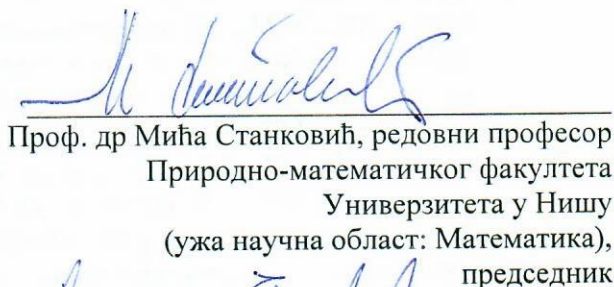 Проф. др Мића Станковић, редовни професор
Природно-математичког факултета
Универзитета у Нишу
(ужа научна област: Математика),
председник